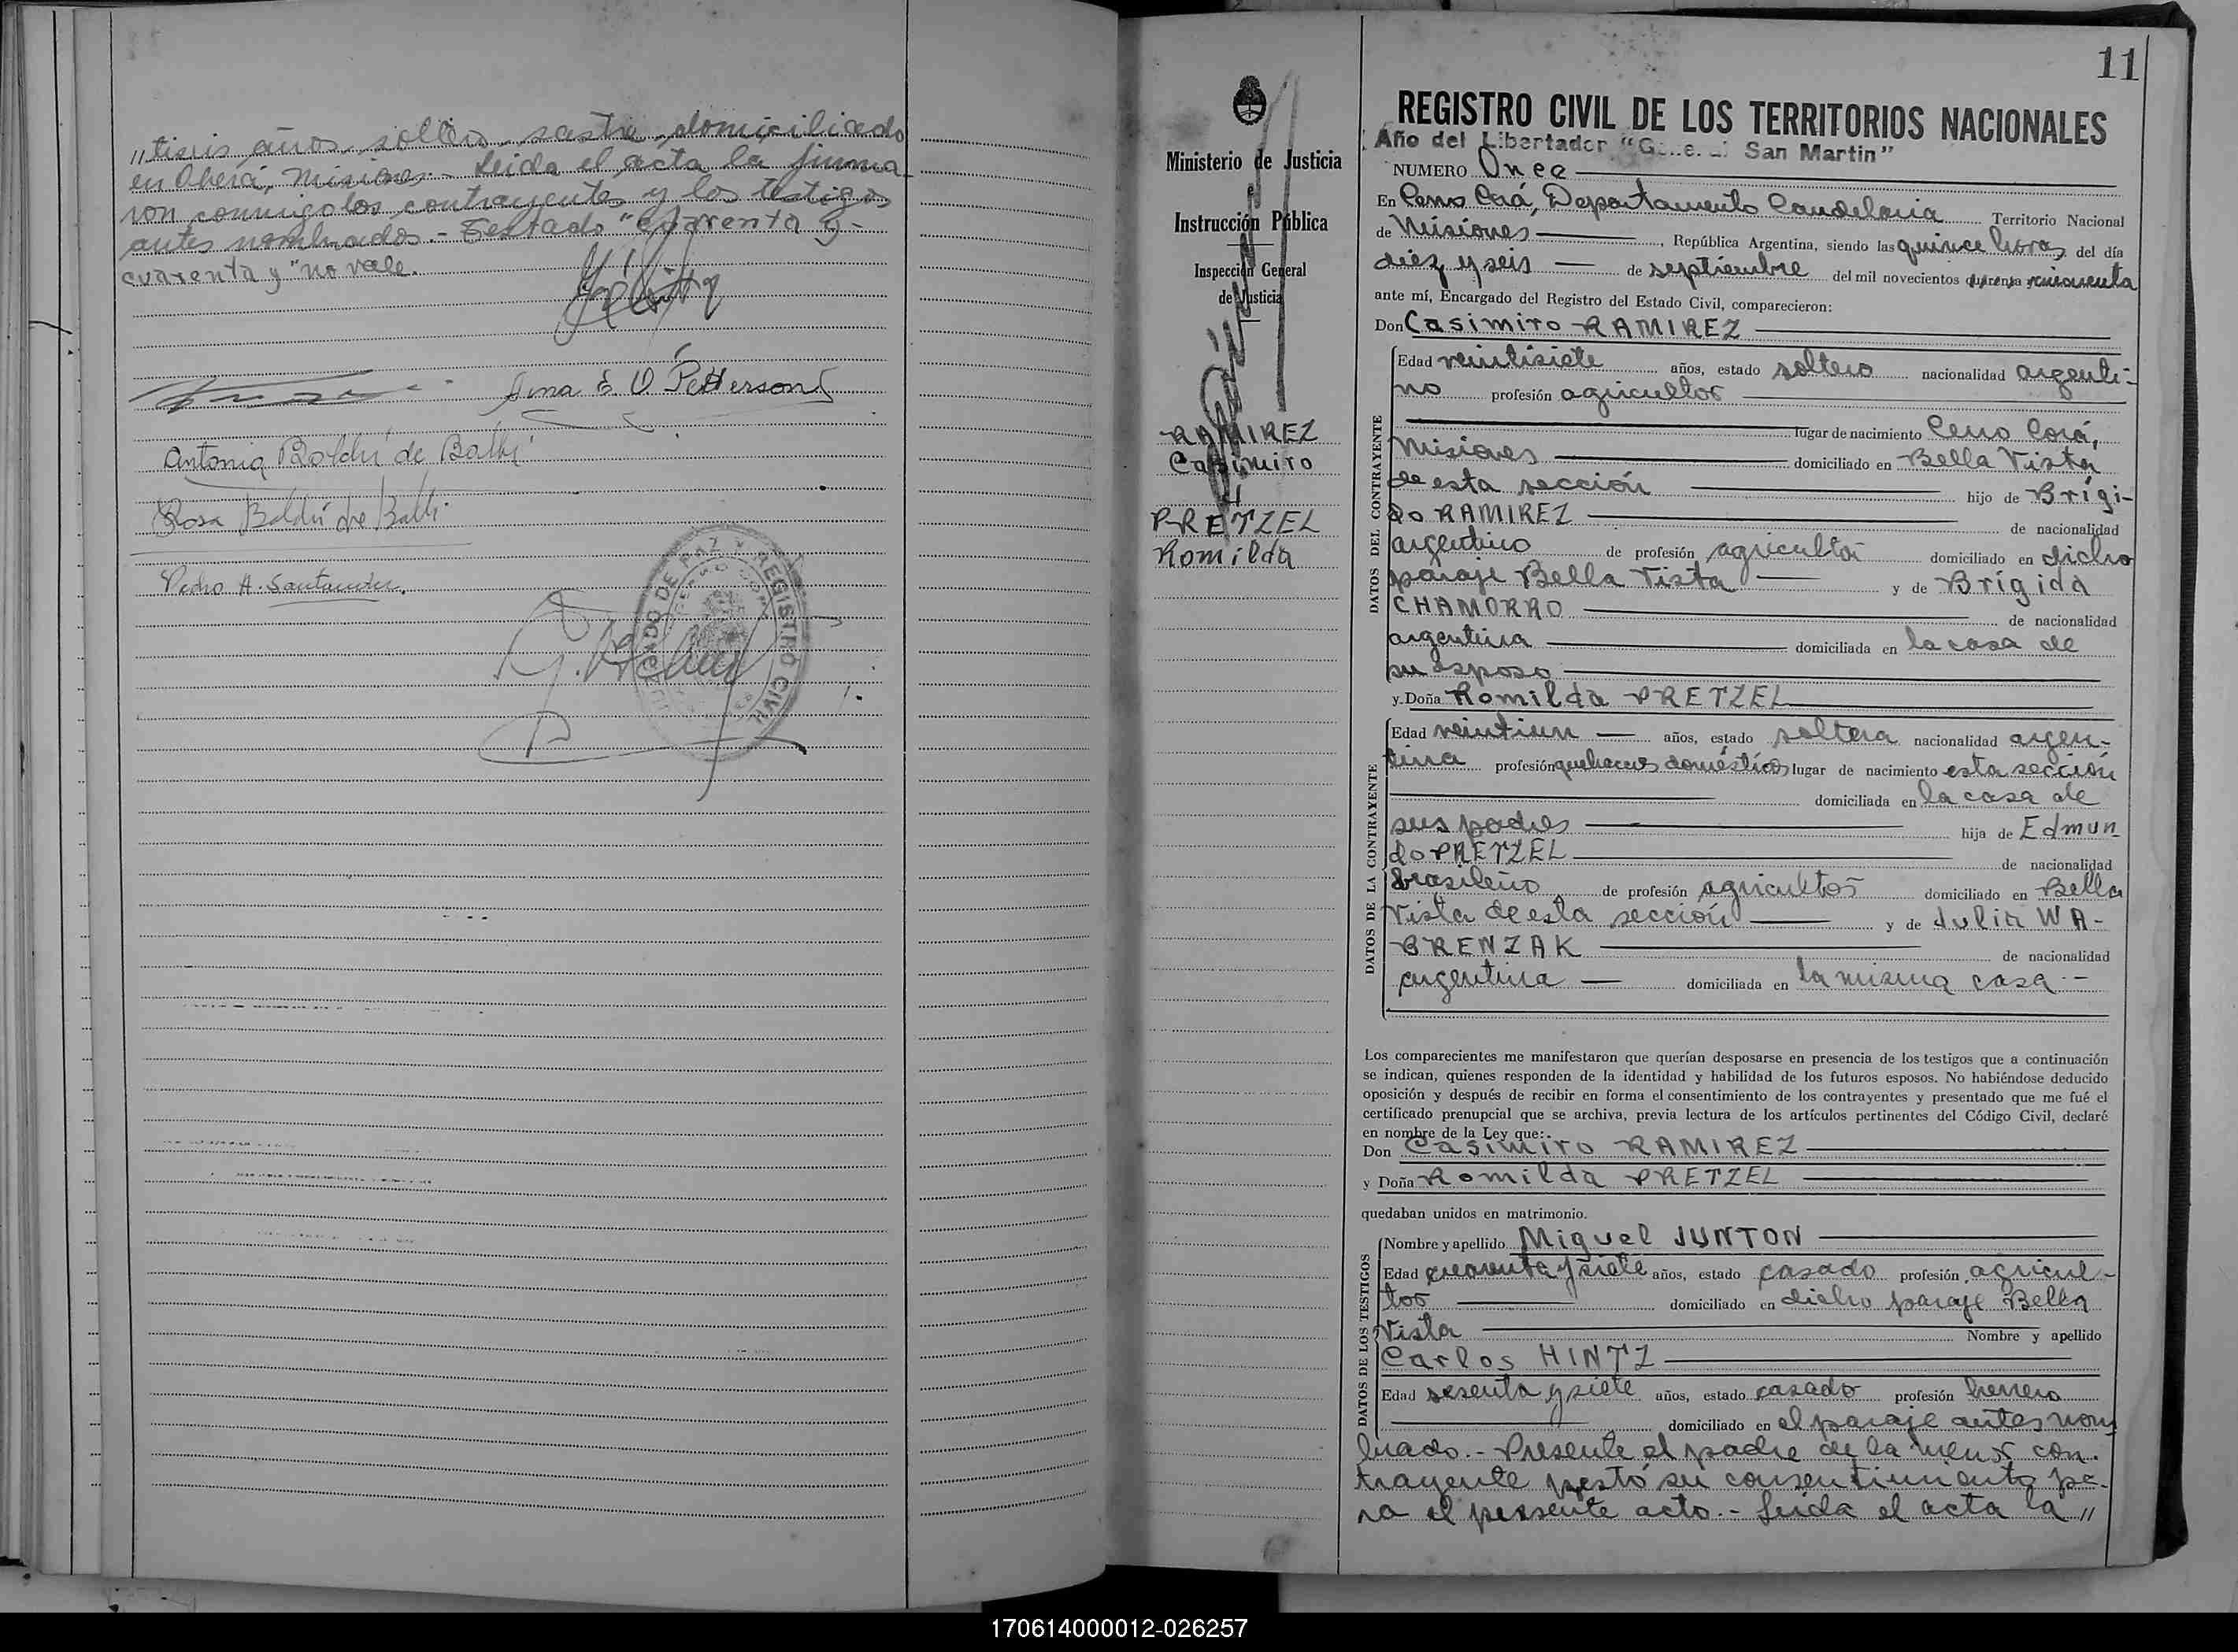 „tiseis años, soltero, sastre, domiciliado
en Oberá, Misiones.- Leida el acta la firma-
ron conmigo los contrayentes y los testigos
antes nombrados.- Testado "cuarenta y-
cuarenta y" no vale.
E. O. Petterson
Antonia Boldú de Batti
Rosa Boldú de Batti
Pedro A. Santander.
JUZGADO DE PAZ Y REGISTRO CIVIL
Ministerio de Justicia
e
Instrucción Pública
Inspección General
de Justicia
RAMIREZ
Casimiro
y
PRETZEL
Romilda
11
REGISTRO CIVIL DE LOS TERRITORIOS NACIONALES
Año del Libertador "General San Martin"
NUMERO Once
En Cerro Corá, Departamento Candelaria Territorio Nacional
de Misiones, República Argentina, siendo las quince horas del día
diez y seis de septiembre del mil novecientos cuarenta cincuenta
ante mí, Encargado del Registro del Estado Civil, comparecieron:
Don Casimiro RAMIREZ
DATOS DEL CONTRAYENTE
Edad veintisiete años, estado soltero nacionalidad argenti-
no profesión agricultor
lugar de nacimiento Cerro Corá,
Misiones domiciliado en Bella Vista
de esta sección hijo de Brígi-
do RAMIREZ de nacionalidad
argentino de profesión agricultor domiciliado en dicho
paraje Bella Vista y de Brígida
CHAMORRO de nacionalidad
argentina domiciliada en la casa de
su esposo
y Doña Romilda PRETZEL
DATOS DE LA CONTRAYENTE
Edad veintiun años, estado soltera nacionalidad argen-
tina profesión quehaceres domésticos lugar de nacimiento esta sección
domiciliada en la casa de
sus padres hija de Edmun
do PRETZEL de nacionalidad
brasileño de profesión agricultor domiciliado en Bella
Vista de esta sección y de Julia WA-
BRENZAK de nacionalidad
argentina domiciliada en la misma casa -
Los comparecientes me manifestaron que querían desposarse en presencia de los testigos que a continuación
se indican, quienes responden de la identidad y habilidad de los futuros esposos. No habiéndose deducido
oposición y después de recibir en forma el consentimiento de los contrayentes y presentado que me fué el
certificado prenupcial que se archiva, previa lectura de los artículos pertinentes del Código Civil, declaré
en nombre de la Ley que:
Don Casimiro RAMIREZ
y Doña Romilda PRETZEL
quedaban unidos en matrimonio.
DATOS DE LOS TESTIGOS
Nombre y apellido Miguel JUNTON
Edad cuarenta y siete años, estado casado profesión agricul-
tor domiciliado en dicho paraje Bella
Vista Nombre y apellido
Carlos HINTZ
Edad sesenta y siete años, estado casado profesión herrero
domiciliado en el paraje antes nom
brado.- Presente el padre de la menor con-
trayente prestó su consentimiento pa-
ra el presente acto.- Leida el acta la „
170614000012-026257